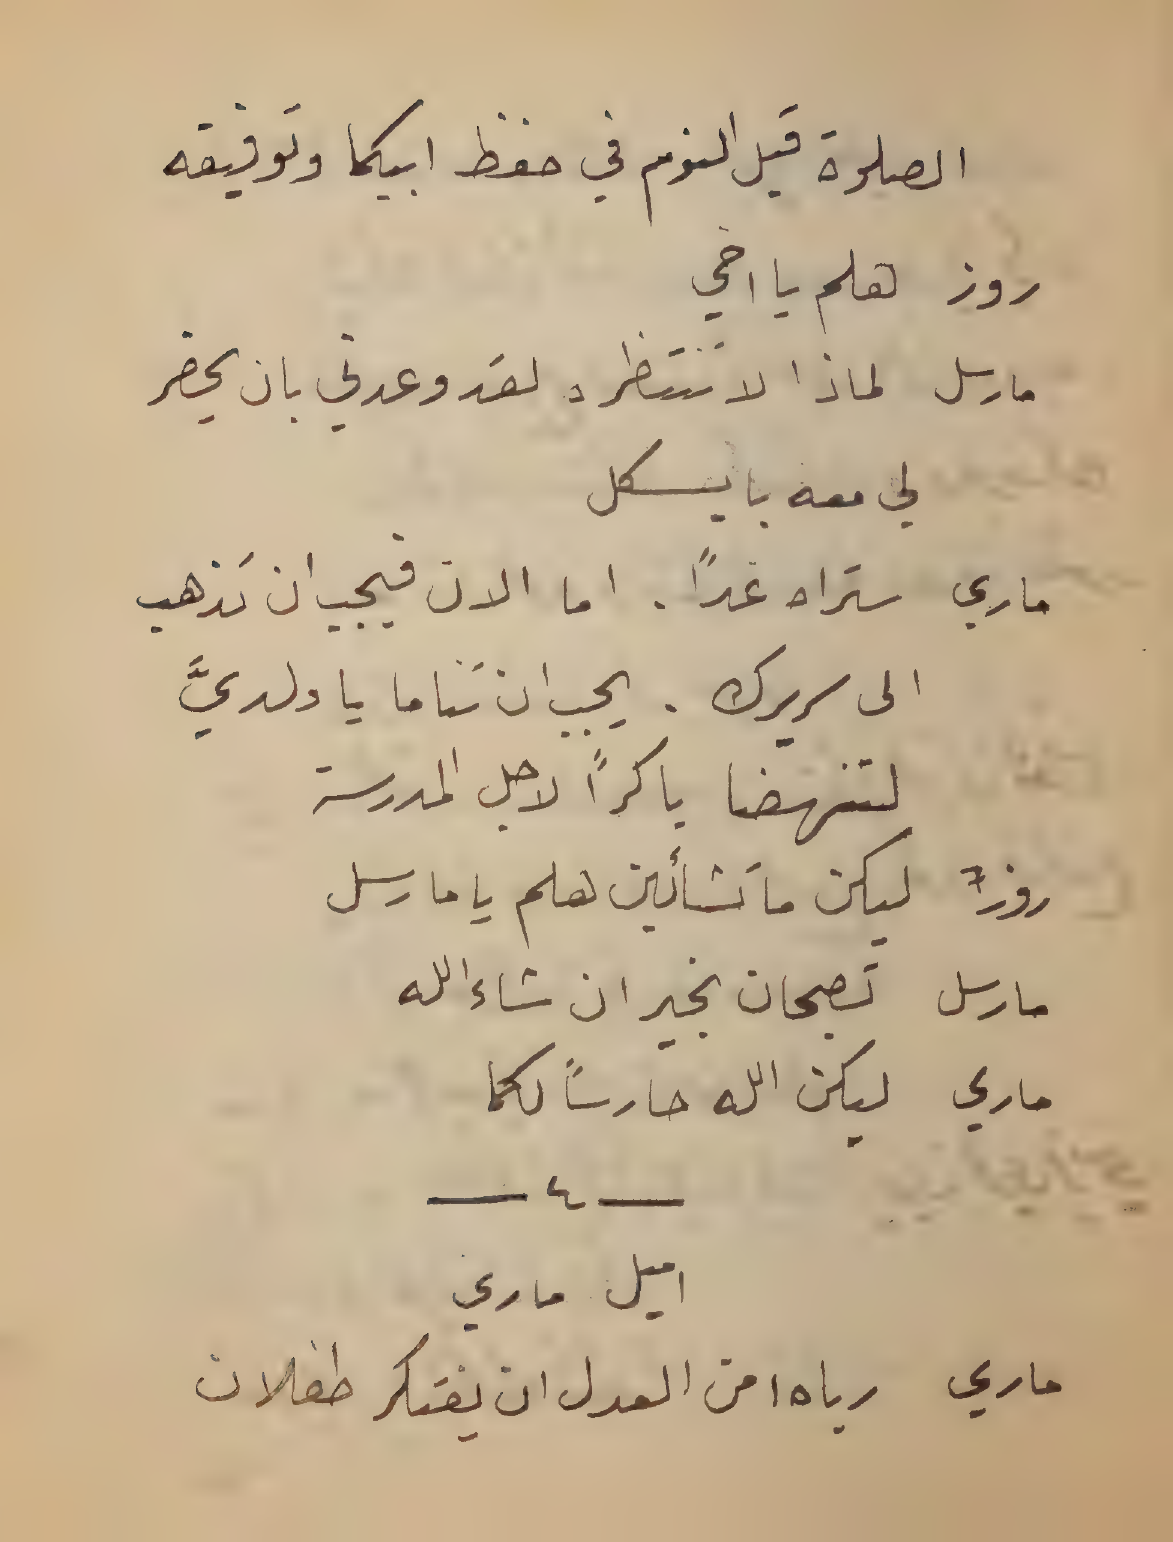 الصلوة قبل النوم في حفظ ابيكما وتوفيقه
روز هلم يا اخي
مارسل لماذا لا تنتظره لقد وعدني بان يحضر
لي معه بايسكل
ماري ستراه غدًا . اما الان فيجب ان تذهب
الى سريرك . يجب ان تناما يا ولديَّ
لتنهضا باكرًا لاجل المدرسة
روز ليكن ما تشأين هلم يا مارسل
مارسل تصبحان بخير ان شاء الله
ماري ليكن الله حارسًا لكما
— ٤ —
اميل ماري
ماري رباه امن العدل ان يفتكر طفلان